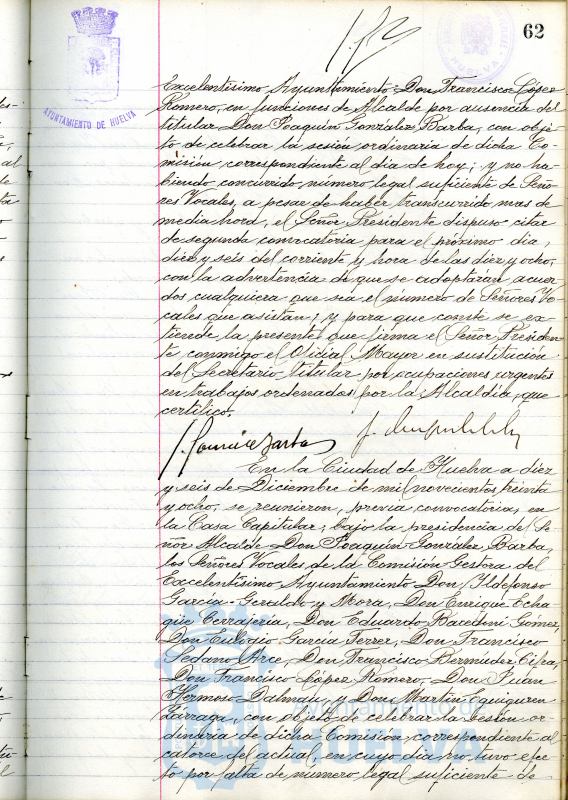 62
AYUNTAMIENTO DE HUELVA
HUELVA
Excelentísimo Ayuntamiento Don Francisco López
Romero, en funciones de Alcalde por ausencia del
titular Don Joaquín González Barba, con obje-
to de celebrar la sesión ordinaria de dicha Co-
misión correspondiente al día de hoy; y no ha-
biendo concurrido número legal suficiente de Seño-
res Vocales, a pesar de haber transcurrido mas de
media hora, el Señor Presidente dispuso citar
de segunda convocatoria para el próximo dia,
diez y seis del corriente y hora de las diez y ocho,
con la advertencia de que se adoptarán acuer-
dos cualquiera que sea el número de Señores Vo-
cales que asistan; y para que conste se ex-
tiende la presente que firma el Señor Presiden-
te conmigo el Oficial Mayor en sustitución
del Secretario titular por ocupaciones urgentes
en trabajos ordenados por la Alcaldía, que
certifico.
En la Ciudad de Huelva a diez
y seis de Diciembre de mil novecientos treinta
y ocho, se reunieron, previa convocatoria, en
la Casa Capitular, bajo la presidencia del Se-
ñor Alcalde Don Joaquín González Barba,
los Señores Vocales de la Comisión Gestora del
Excelentísimo Ayuntamiento Don Ildefonso
García Geraldo y Mora, Don Enrique Echa-
güe Cerrajería, Don Eduardo Bacedoni Gómez,
Don Eulogio García Ferrer, Don Francisco
Sedano Arce, Don Francisco Bermudez Cifra,
Don Francisco López Romero, Don Juan
Hermos Dalmau y Don Martín Eguiguren
Zarraga, con objeto de celebrar la sesión or-
dinaria de dicha Comisión correspondiente al
catorce del actual, en cuyo dia no tuvo efec-
to por falta de número legal suficiente de
Ayuntamiento de
HUELVA